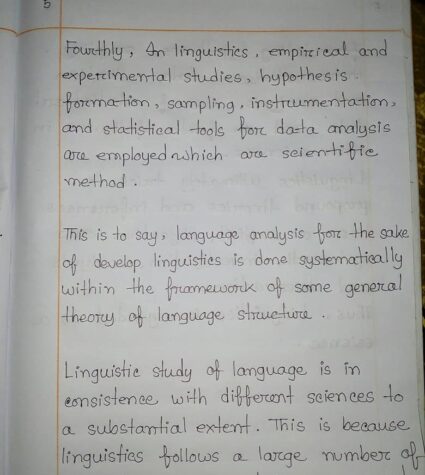 5
Fourthly, In linguistics, empirical and
experimental studies, hypothesis
formation, sampling, instrumentation,
and statistical tools for data analysis
are employed which are scientific
method.
This is to say, language analysis for the sake
of develop linguistics is done systematically
within the framework of some general
theory of language structure.
Linguistic study of language is in
consistence with different sciences to
a substantial extent. This is because
linguistics follows a large number of